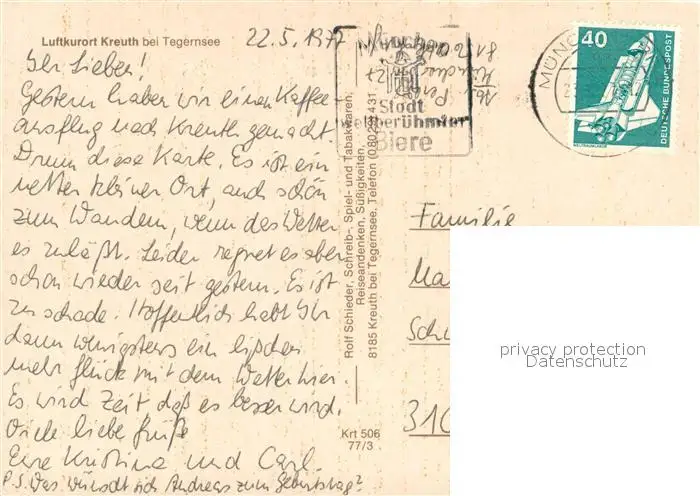 Luftkurort Kreuth bei Tegernsee
22.5.1977
Ihr Lieben!
Gestern haben wir einen Kaffee-
ausflug nach Kreuth gemacht.
Drum diese Karte. Es ist ein
netter kleiner Ort, auch schön
zum Wandern, wenn das Wetter
es zuläßt. Leider regnet es aber
schon wieder seit gestern. Es ist
zu schade. Hoffentlich habt Ihr
dann wenigstens ein bißchen
mehr Glück mit dem Wetter hier.
Es wird Zeit daß es besser wird.
Viele liebe Grüße
Eure Kristina und Carl.
P.S. Was wünscht sich Andreas zum Geburtstag?
Rolf Schieder, Schreib-, Spiel- und Tabakwaren,
Reiseandenken, Süßigkeiten,
8185 Kreuth bei Tegernsee, Telefon (08029) 431
Krt 506
77/3
München
Stadt
weltberühmter
Biere
MÜNC
40
DEUTSCHE BUNDESPOST
WELTRAUMLABOR
Familie
Ma
Sch
310
privacy protection
Datenschutz